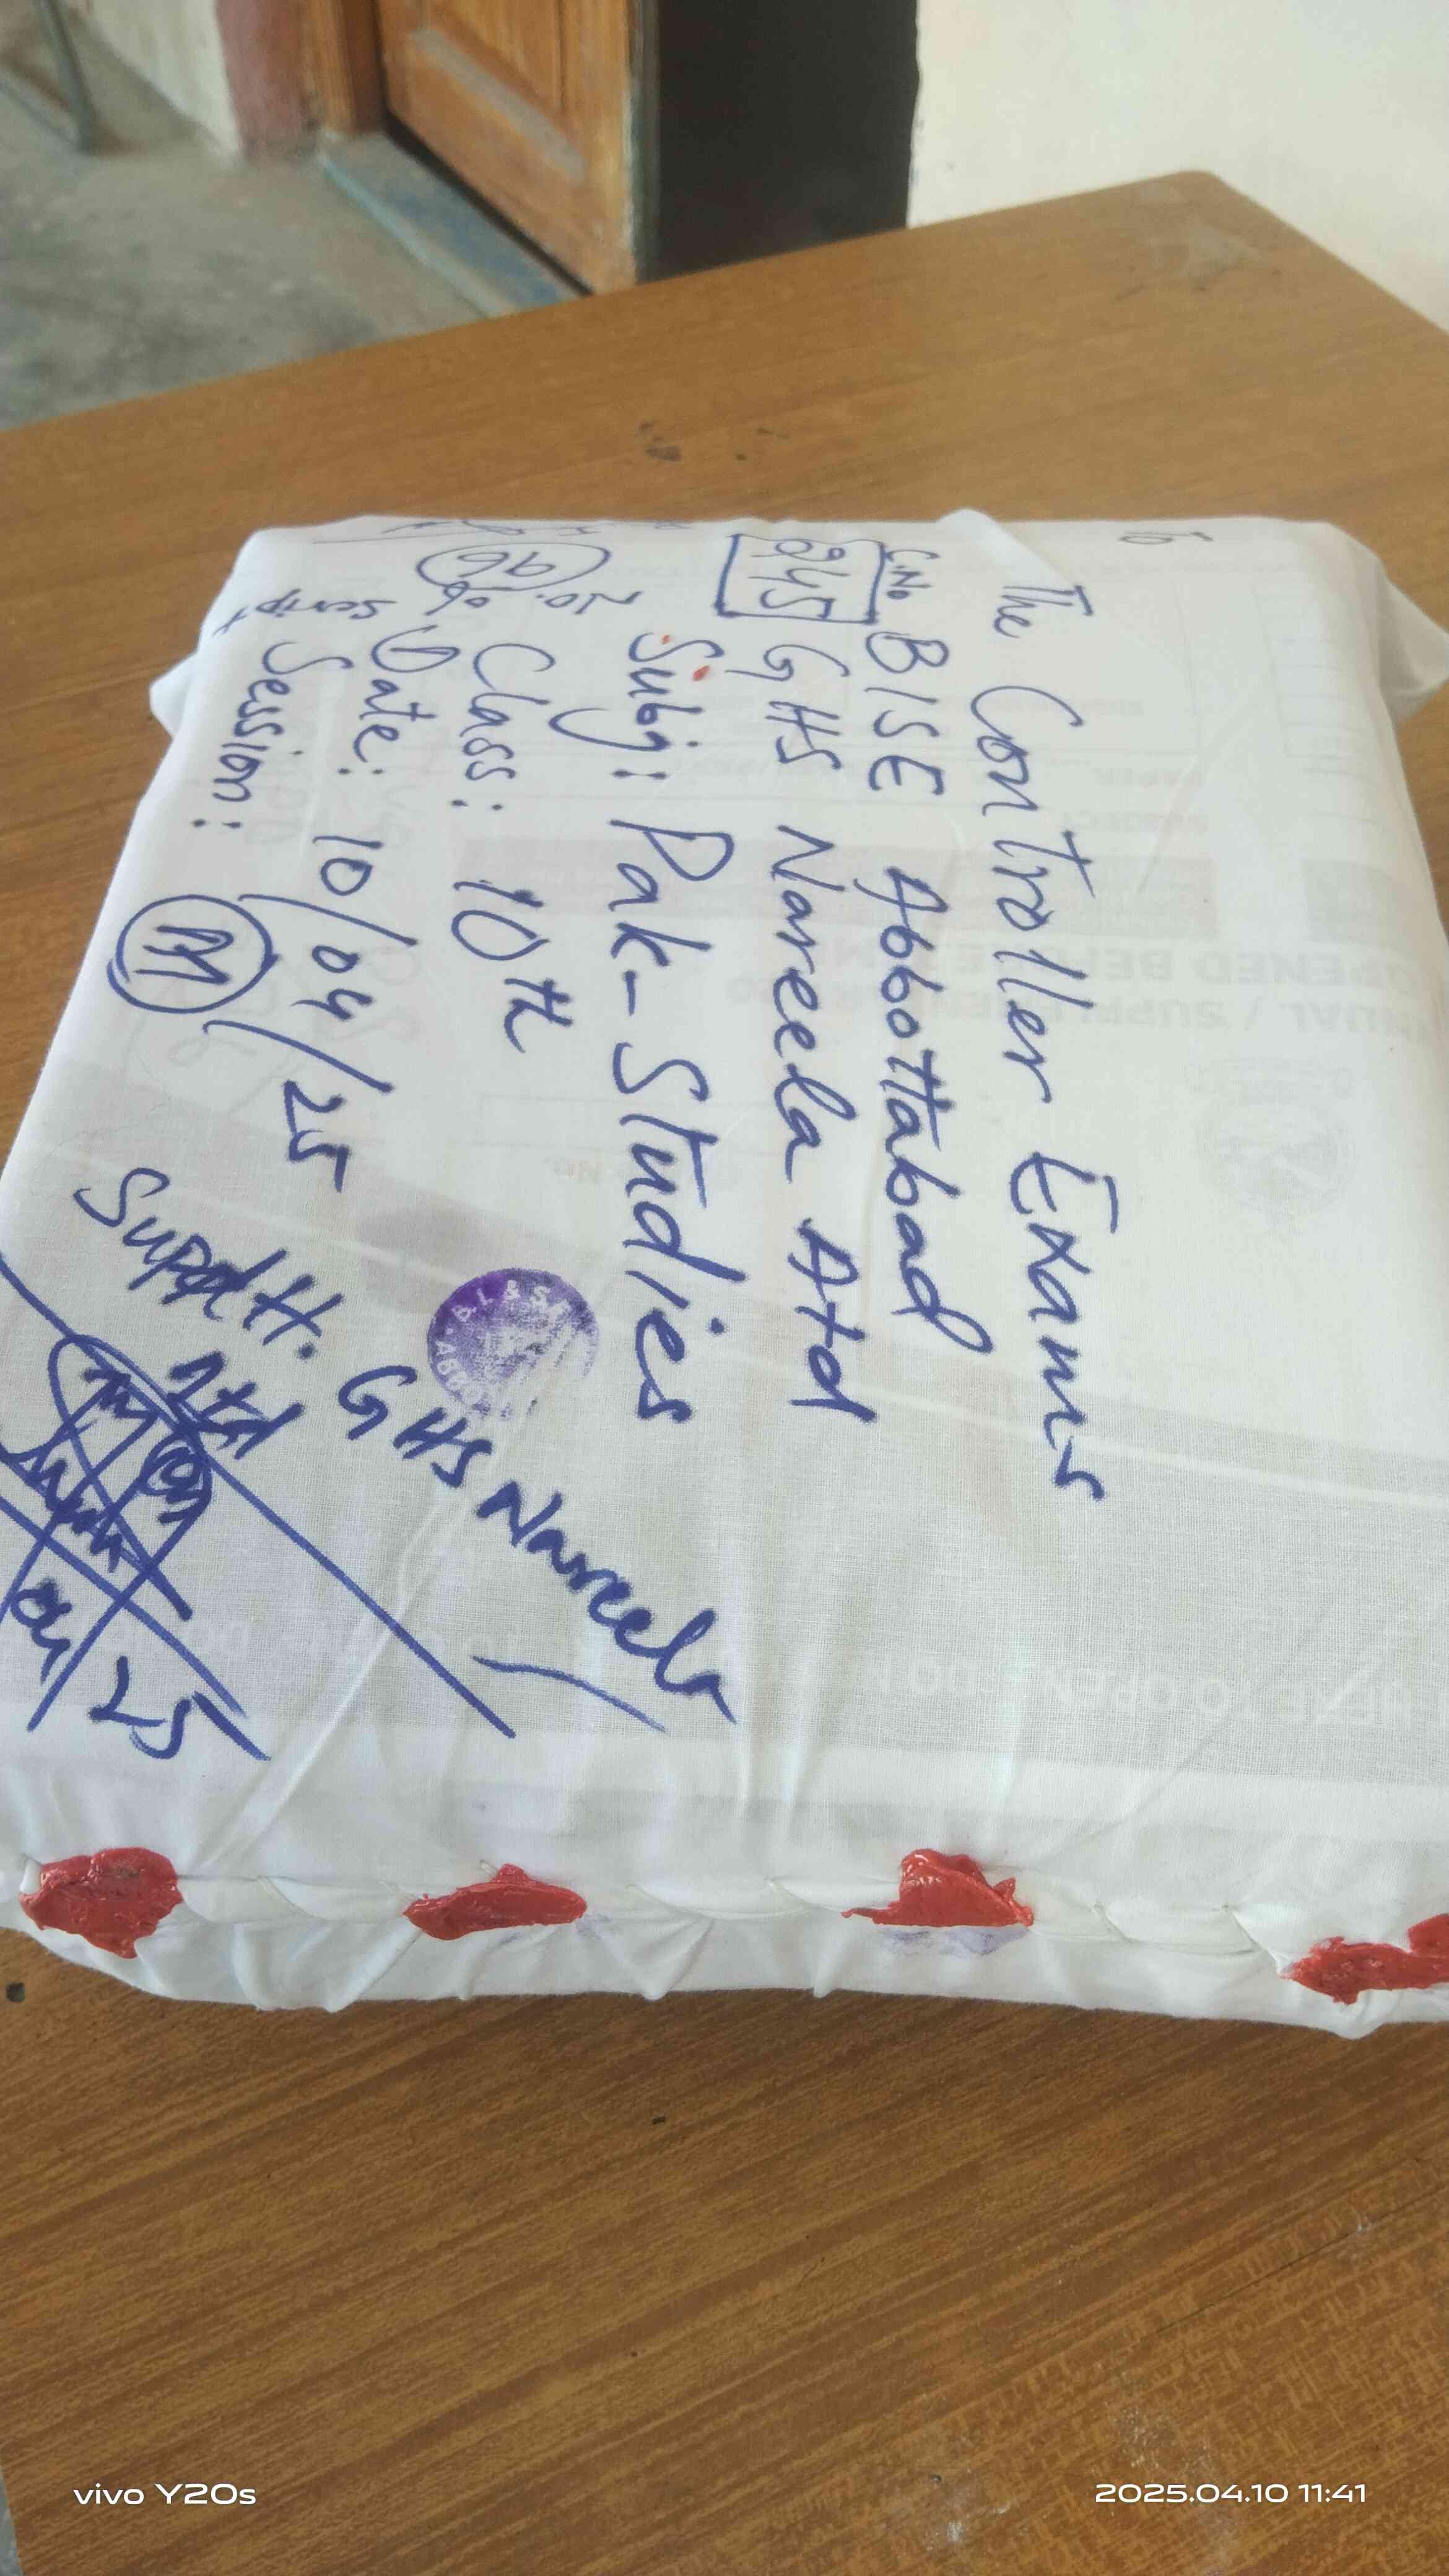 To
The Controller Exams
C.No BISE Abbottabad
245 GHS Nareela Atd
Subj: Pak-Studies
No. of Script 96
Class: 10th
Date: 10/04/25
Session: M
Supdtt. GHS Nareela
Atd
04/25
B.I & S.
ABBO
vivo Y20s
2025.04.10 11:41